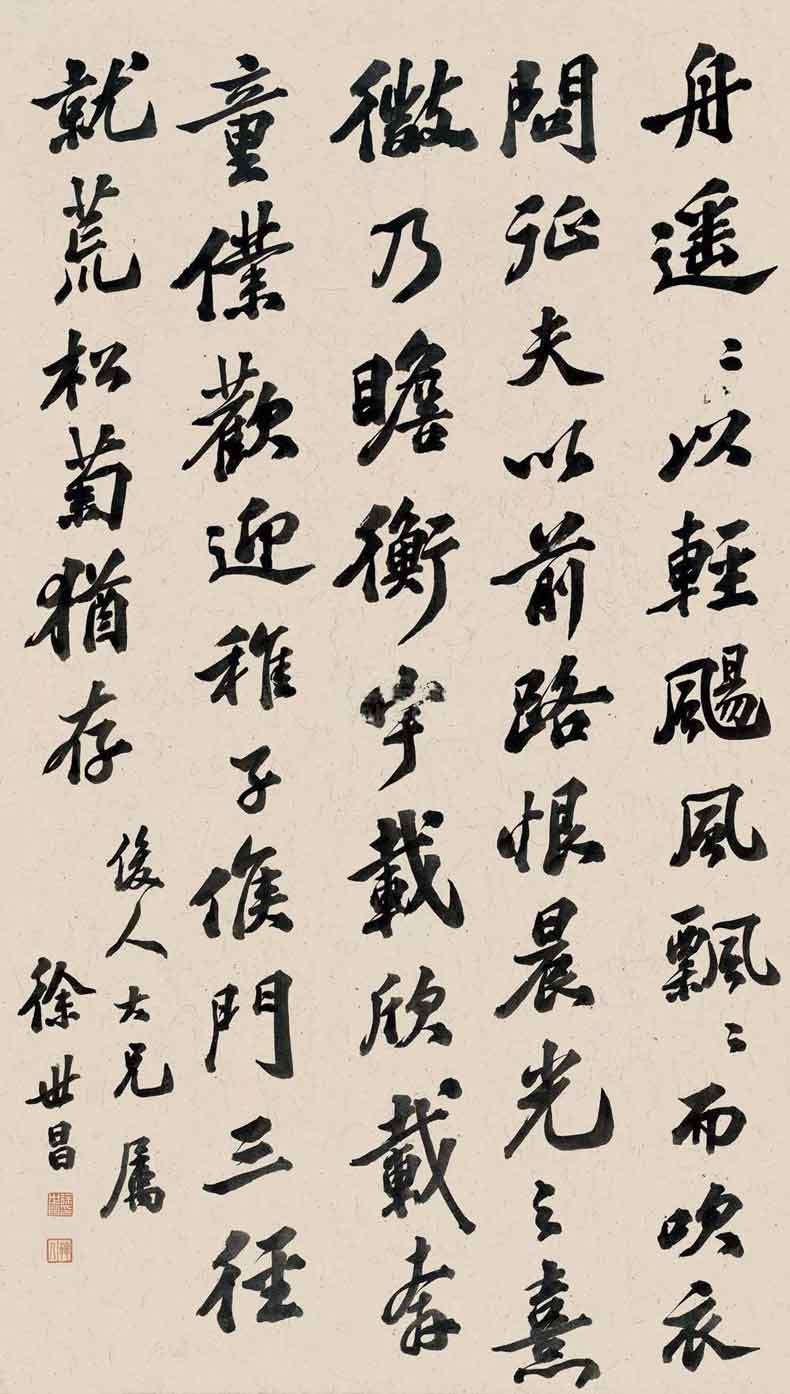 舟遥〻以輕颺風飄〻而吹衣
問征夫以前路恨晨光之熹
微乃瞻衡宇載欣載奔
童僕歡迎稚子候門三徑
就荒松菊猶存
俊人大兄属
徐世昌